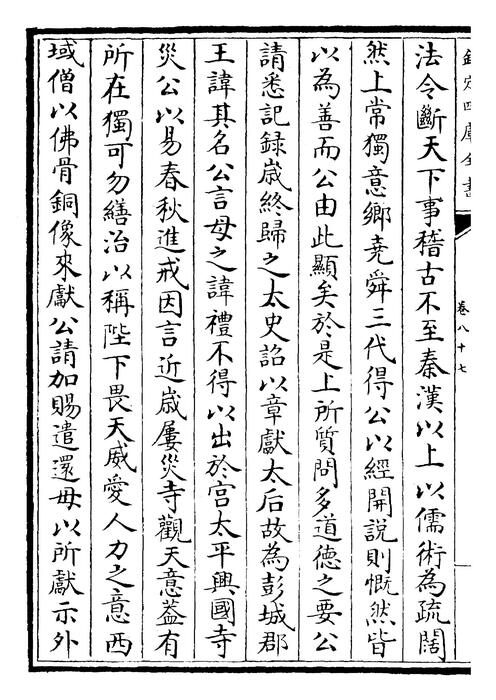 欽定四庫全書
卷八十七
法令斷天下事稽古不至秦漢以上以儒術為疏闊
然上常獨意鄉堯舜三代得公以經開說則慨然皆
以為善而公由此顯矣於是上所質問多道德之要公
請悉記録嵗終歸之太史詔以章獻太后故為彭城郡
王諱其名公言母之諱禮不得以出於宮太平興國寺
災公以易春秋進戒因言近嵗屢災寺觀天意葢有
所在獨可勿繕治以稱陛下畏天威愛人力之意西
域僧以佛骨銅像來獻公請加賜遣還毋以所獻示外